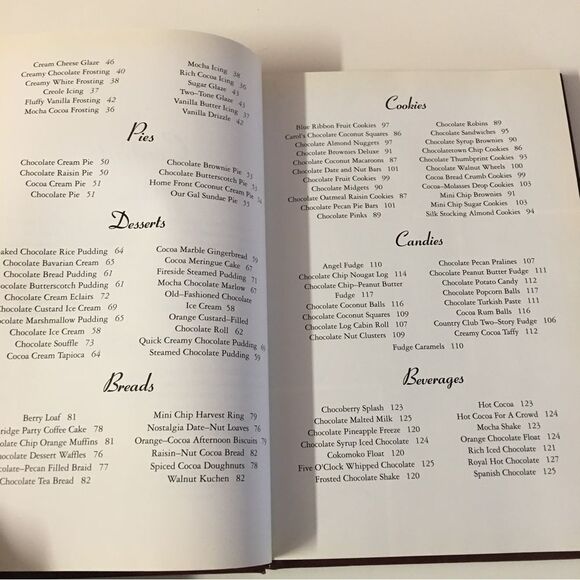 Cream Cheese Glaze 46
Creamy Chocolate Frosting 40
Creamy White Frosting 38
Creole Icing 37
Fluffy Vanilla Frosting 42
Mocha Cocoa Frosting 36
Mocha Icing 38
Rich Cocoa Icing 36
Sugar Glaze 43
Two-Tone Glaze 43
Vanilla Butter Icing 37
Vanilla Drizzle 42
Pies
Chocolate Cream Pie 50
Chocolate Raisin Pie 50
Cocoa Cream Pie 51
Chocolate Pie 51
Chocolate Brownie Pie 53
Chocolate Butterscotch Pie 53
Home Front Coconut Cream Pie
Our Gal Sundae Pie 55
Desserts
aked Chocolate Rice Pudding 64
Chocolate Bavarian Cream 65
Chocolate Bread Pudding 61
Chocolate Butterscotch Pudding 61
Chocolate Cream Eclairs 72
Chocolate Custard Ice Cream 69
ocolate Marshmallow Pudding 65
Chocolate Ice Cream 58
Chocolate Souffle 73
Cocoa Cream Tapioca 64
Cocoa Marble Gingerbread 59
Cocoa Meringue Cake 67
Fireside Steamed Pudding 71
Mocha Chocolate Marlow 67
Old-Fashioned Chocolate
Ice Cream 58
Orange Custard-Filled
Chocolate Roll 62
Quick Creamy Chocolate Pudding
Steamed Chocolate Pudding 59
Breads
Berry Loaf 81
ridge Party Coffee Cake 78
olate Chip Orange Muffins 81
ocolate Dessert Waffles 76
colate-Pecan Filled Braid 77
Chocolate Tea Bread 82
Mini Chip Harvest Ring 79
Nostalgia Date-Nut Loaves 76
Orange-Cocoa Afternoon Biscuits 79
Raisin-Nut Cocoa Bread 82
Spiced Cocoa Doughnuts 78
Walnut Kuchen 82
Cookies
Blue Ribbon Fruit Cookies 97
Carol's Chocolate Coconut Squares 86
Chocolate Almond Nuggets 97
Chocolate Brownies Deluxe 91
Chocolate Coconut Macaroons 87
Chocolate Date and Nut Bars 101
Chocolate Fruit Cookies 99
Chocolate Midgets 90
Chocolate Oatmeal Raisin Cookies 87
Chocolate Pecan Pie Bars 101
Chocolate Pinks 89
Chocolate Robins 89
Chocolate Sandwiches 95
Chocolate Syrup Brownies 90
Chocolatetown Chip Cookies 86
Chocolate Thumbprint Cookies 93
Chocolate Walnut Wheels 100
Cocoa Bread Crumb Cookies 99
Cocoa-Molasses Drop Cookies 103
Mini Chip Brownies 91
Mini Chip Sugar Cookies 103
Silk Stocking Almond Cookies 94
Candies
Angel Fudge 110
Chocolate Chip Nougat Log 114
Chocolate Chip-Peanut Butter
Fudge 117
Chocolate Coconut Balls 116
Chocolate Coconut Squares 109
Chocolate Log Cabin Roll 107
Chocolate Nut Clusters 109
Chocolate Pecan Pralines 107
Chocolate Peanut Butter Fudge 111
Chocolate Potato Candy 112
Chocolate Popcorn Balls 117
Chocolate Turkish Paste 111
Cocoa Rum Balls 116
Country Club Two-Story Fudge 106
Creamy Cocoa Taffy 112
Fudge Caramels 110
Beverages
Chocoberry Splash 123
Chocolate Malted Milk 125
Chocolate Pineapple Freeze 120
Chocolate Syrup Iced Chocolate 124
Cokomoko Float 120
Five O'Clock Whipped Chocolate 125
Frosted Chocolate Shake 120
Hot Cocoa 123
Hot Cocoa For A Crowd 124
Mocha Shake 123
Orange Chocolate Float 124
Rich Iced Chocolate 121
Royal Hot Chocolate 127
Spanish Chocolate 125